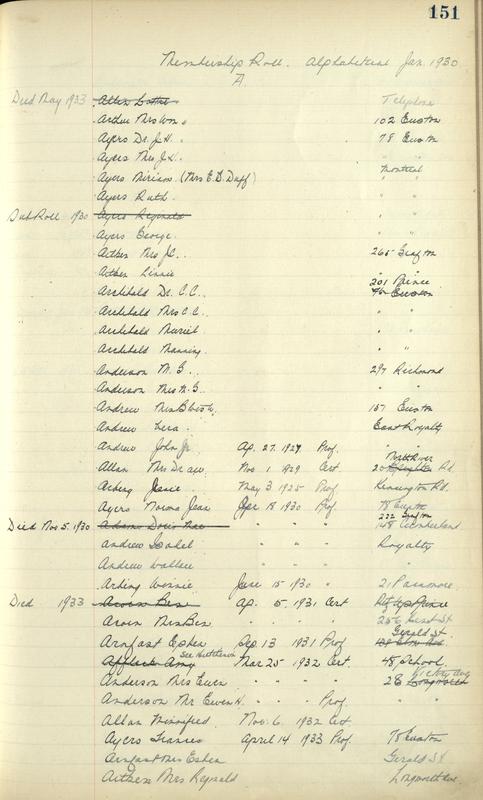 151
Membership Roll. Alphabetical Jan. 1930
A.
Died May 1933 Allen Telephone
Arthur Mrs Wm 102 Euston
Ayers Dr. J.H. 78 Euston
Ayers Mrs J.H. " "
Ayers Miriam (Mrs E.D. Duff) Montreal
Ayers Ruth " "
Dub Roll 1930 Ayers Reginald " "
Ayers George. " "
Aitken Mrs JC. 265 Grafton
Aitken Linnie "
201 Prince
Archibald Dr. C.C. Euston
Archibald Mrs C.C. " "
Archibald Muriel " "
Archibald Manning " "
Anderson M.G. 297 Richmond
Anderson Mrs M.G. " "
Andrew Mrs 157 Euston
Andrew Lera East Royalty
Andrew John Jr. Ap. 27. 1929 Prof. " "
North River
Allan Mrs Nov 1 1929 Cert Rd
Arbing Jessie May 3 1925 Prof Kensington Rd.
Ayers Norma Jean Apr 18 1930 Prof 78 Euston
222 Grafton
Died Nov 5. 1930 Adams Doris Mae " " " 148 Cumberland
Andrew Isabel " " " Royalty
Andrew Wallace " " " "
Arbing Winnie June 15 1930 " 21 Passmore
Died 1933 Acorn Ap. 5. 1931 Cert Prince
Acorn Mrs 256 St
Gerald St.
Arnfast Esper Sep 13 1931 Prof
See Hutcheson
Affleck Amy Mar 25 1932 Cert. 48 School
Victory Ave
Anderson Mrs Ewen " " " " 28 Longworth
Anderson Mr Ewen H. " " " Prof. " "
Allan Winnifred Nov. 6. 1932 Cert
Ayers Frances April 14 1933 Prof. 78 Euston
Arnfast Mrs Esper Gerald St
Aitken Mrs Reginald Longworth Ave.